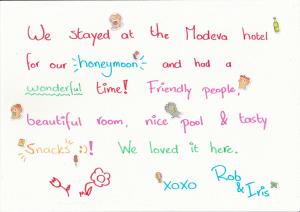 We stayed at the Modeva hotel
for our honeymoon and had a
wonderful time! Friendly people,
beautiful room, nice pool & tasty
Snacks :)! We loved it here.
xoxo Rob
& Iris